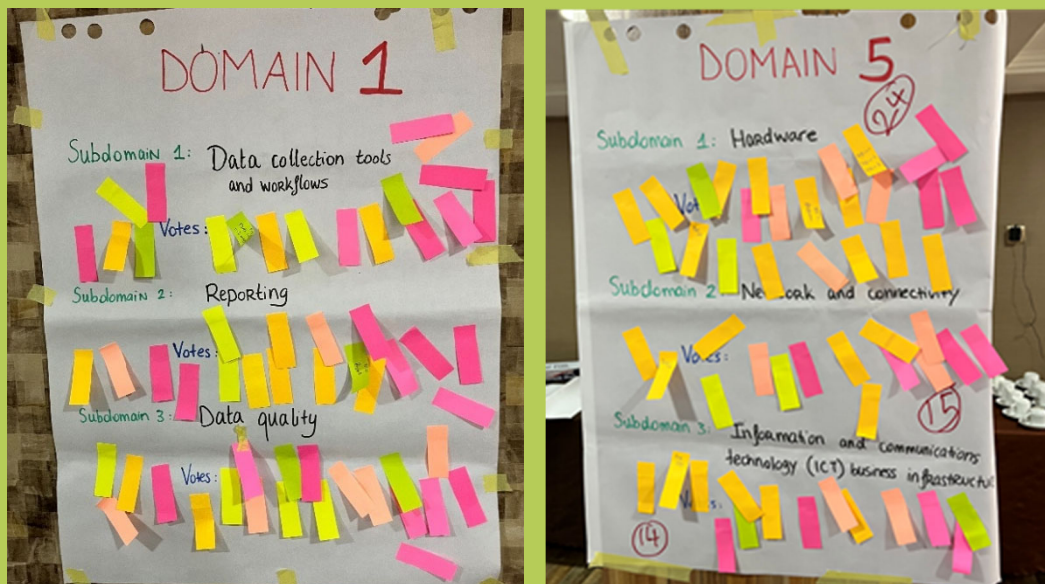 DOMAIN 1
Subdomain 1: Data collection tools
and workflows
Votes:
Subdomain 2: Reporting
Votes:
Subdomain 3: Data quality
Votes:
DOMAIN 5
24
Subdomain 1: Hardware
Subdomain 2 and connectivity
Votes:
15
Subdomain 3: Information and communications
technology (ICT) business infrastructure
14